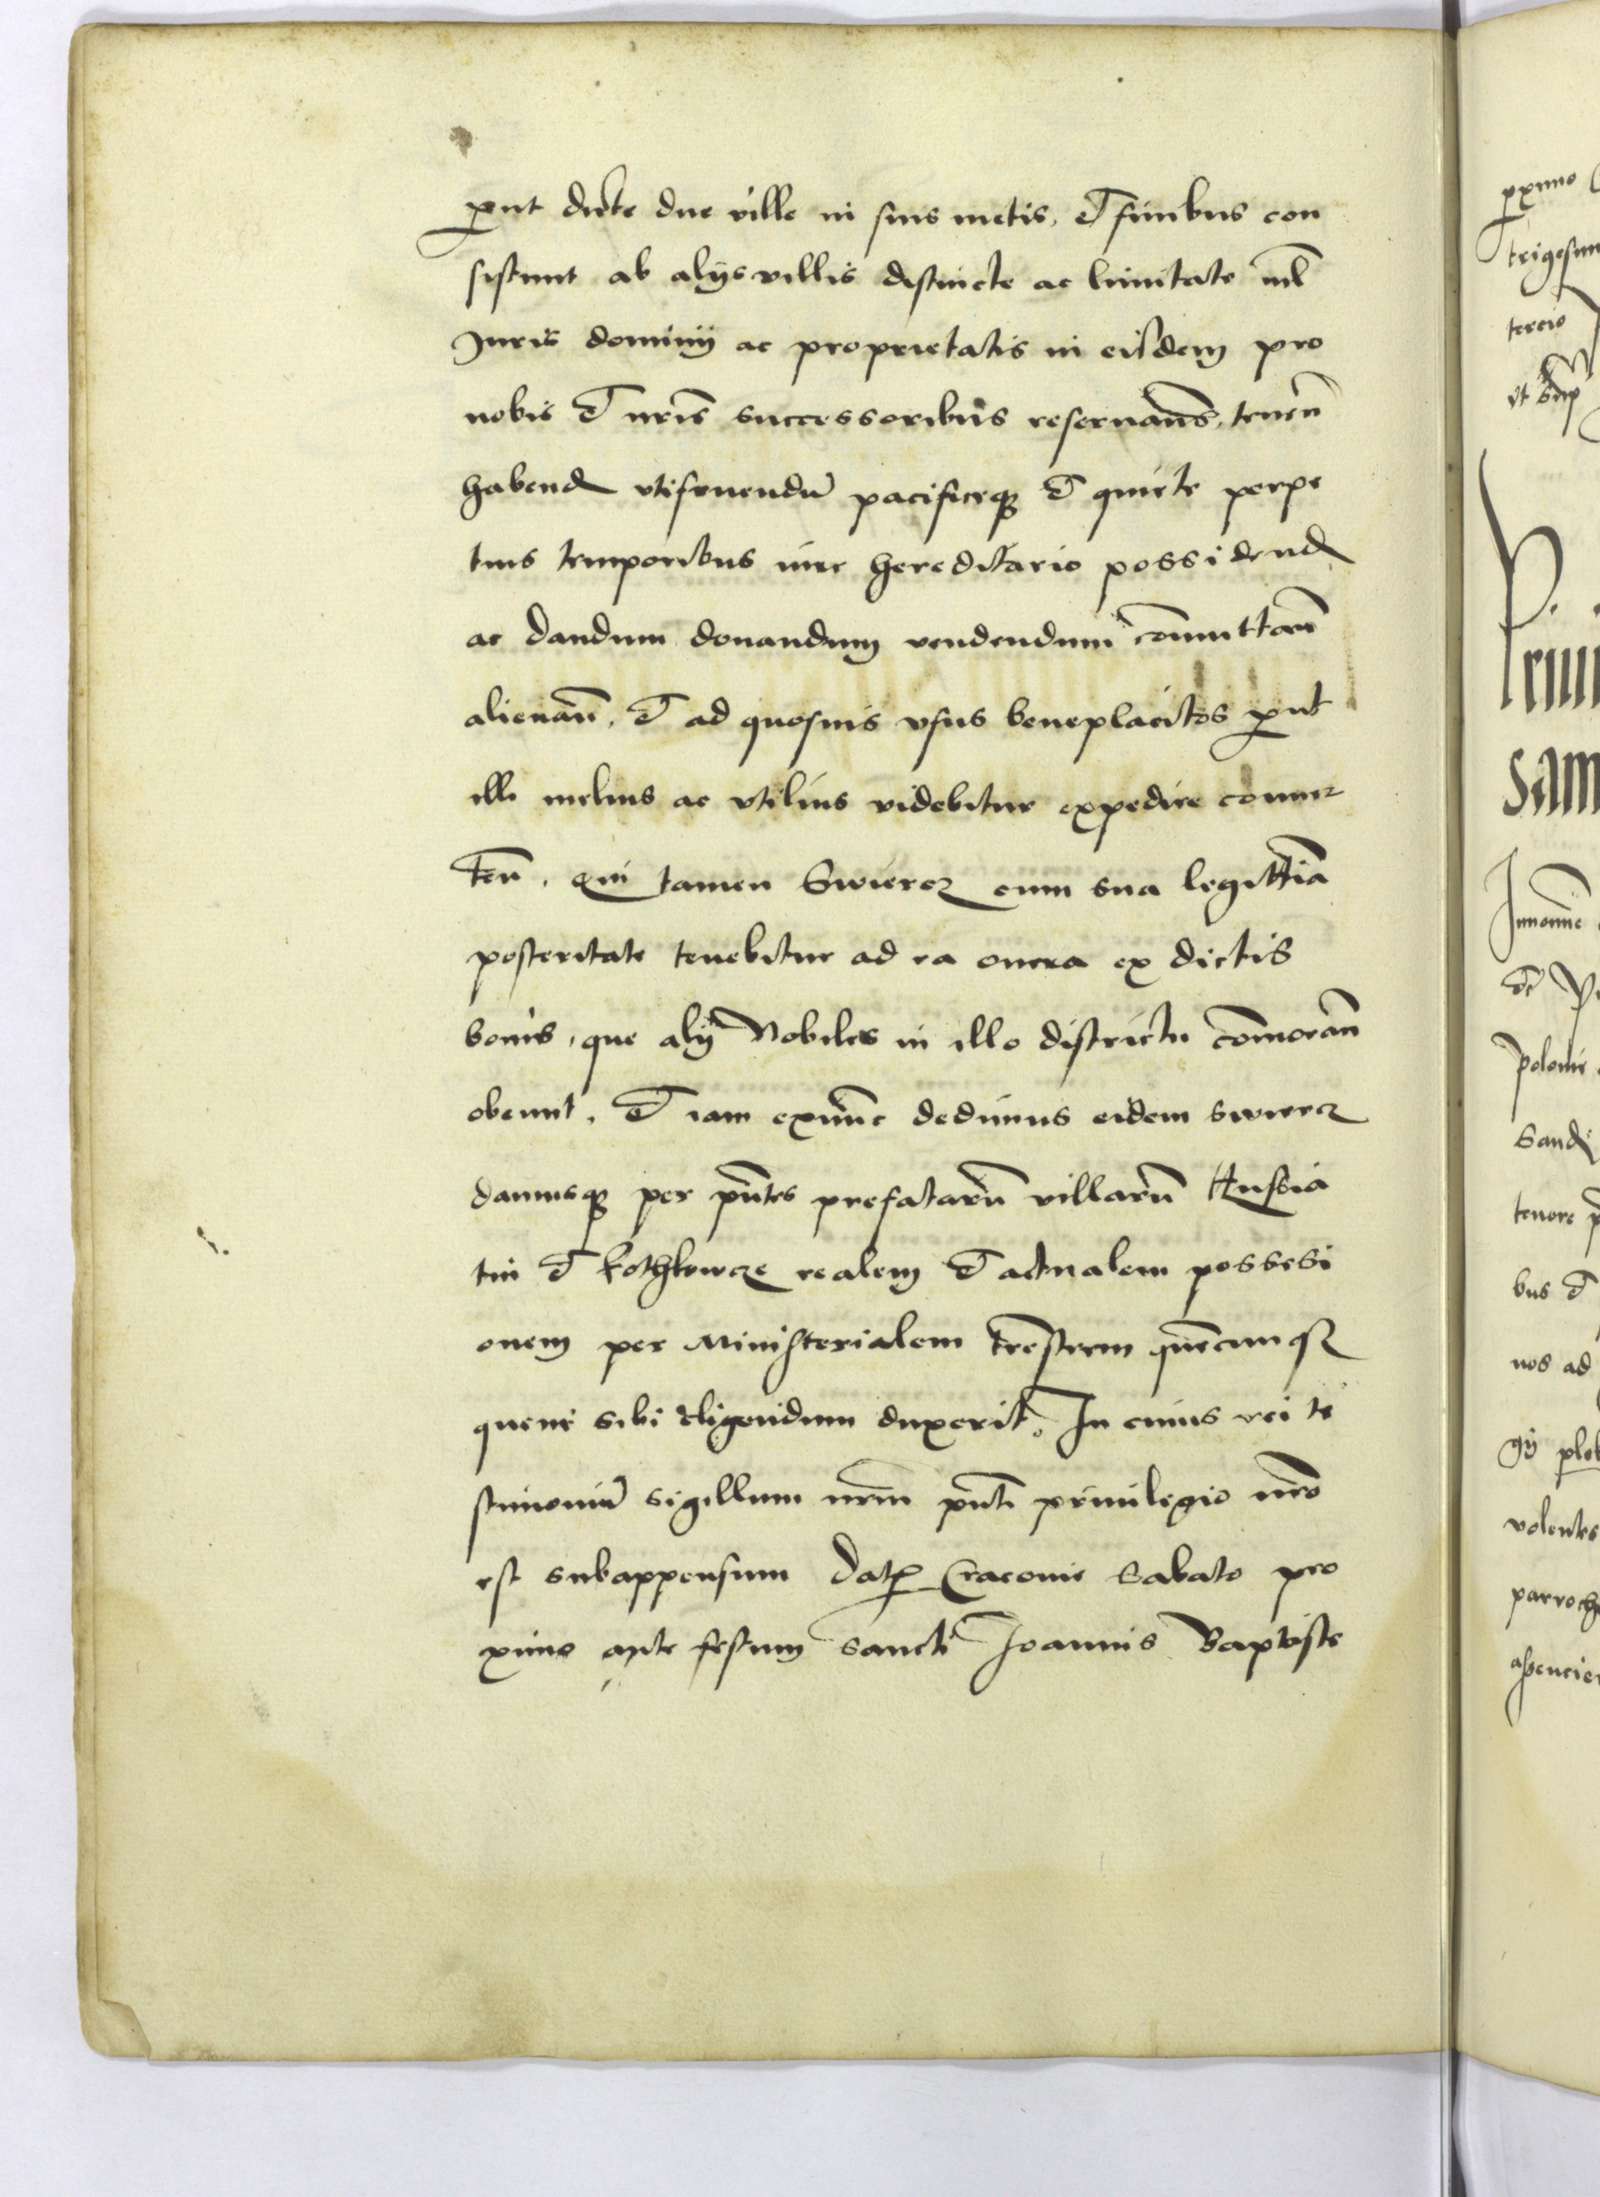 put dicte due ville in suis metis, et finibus con
sistunt ab alijs villis distincte ac limitate nil
Juris dominij ac proprietatis in eisdem pro
nobis et nris successoribus reseruans, tenen
habend vtifruendu pacificeq et quiete perpe
tuis temporibus iure hereditario possidend
ac dandum donandum vendendum comuttan
alienan, et ad quosuis vsus beneplacitos put
illi melius ac vtilius videbitur expedire conuer
ten, qui tamen Swiercz cum sua legittia
posteritate tenebitur ad ea onera ex dictis
bonis, que alij Nobiles in illo districtu comoran
obeunt, et iam exnunc dedimus eidem Swiercz
damusq per pntes prefataru villaru Russia
tin et Kothkowcze realem et actualem possesi
onem per Ministerialem trestrem quecunq
quem sibi eligendum duxerit. In cuius rei te
stimoniu sigillum nrm pnti priuilegio nro
est subappensum Dat Cracouie Sabato pro
ximo ante festum Sancti Joannis Baptiste
pximo
tercio
vt sup
Sam
Polonie
Sand
tenore
bus et
nos ad
volentes